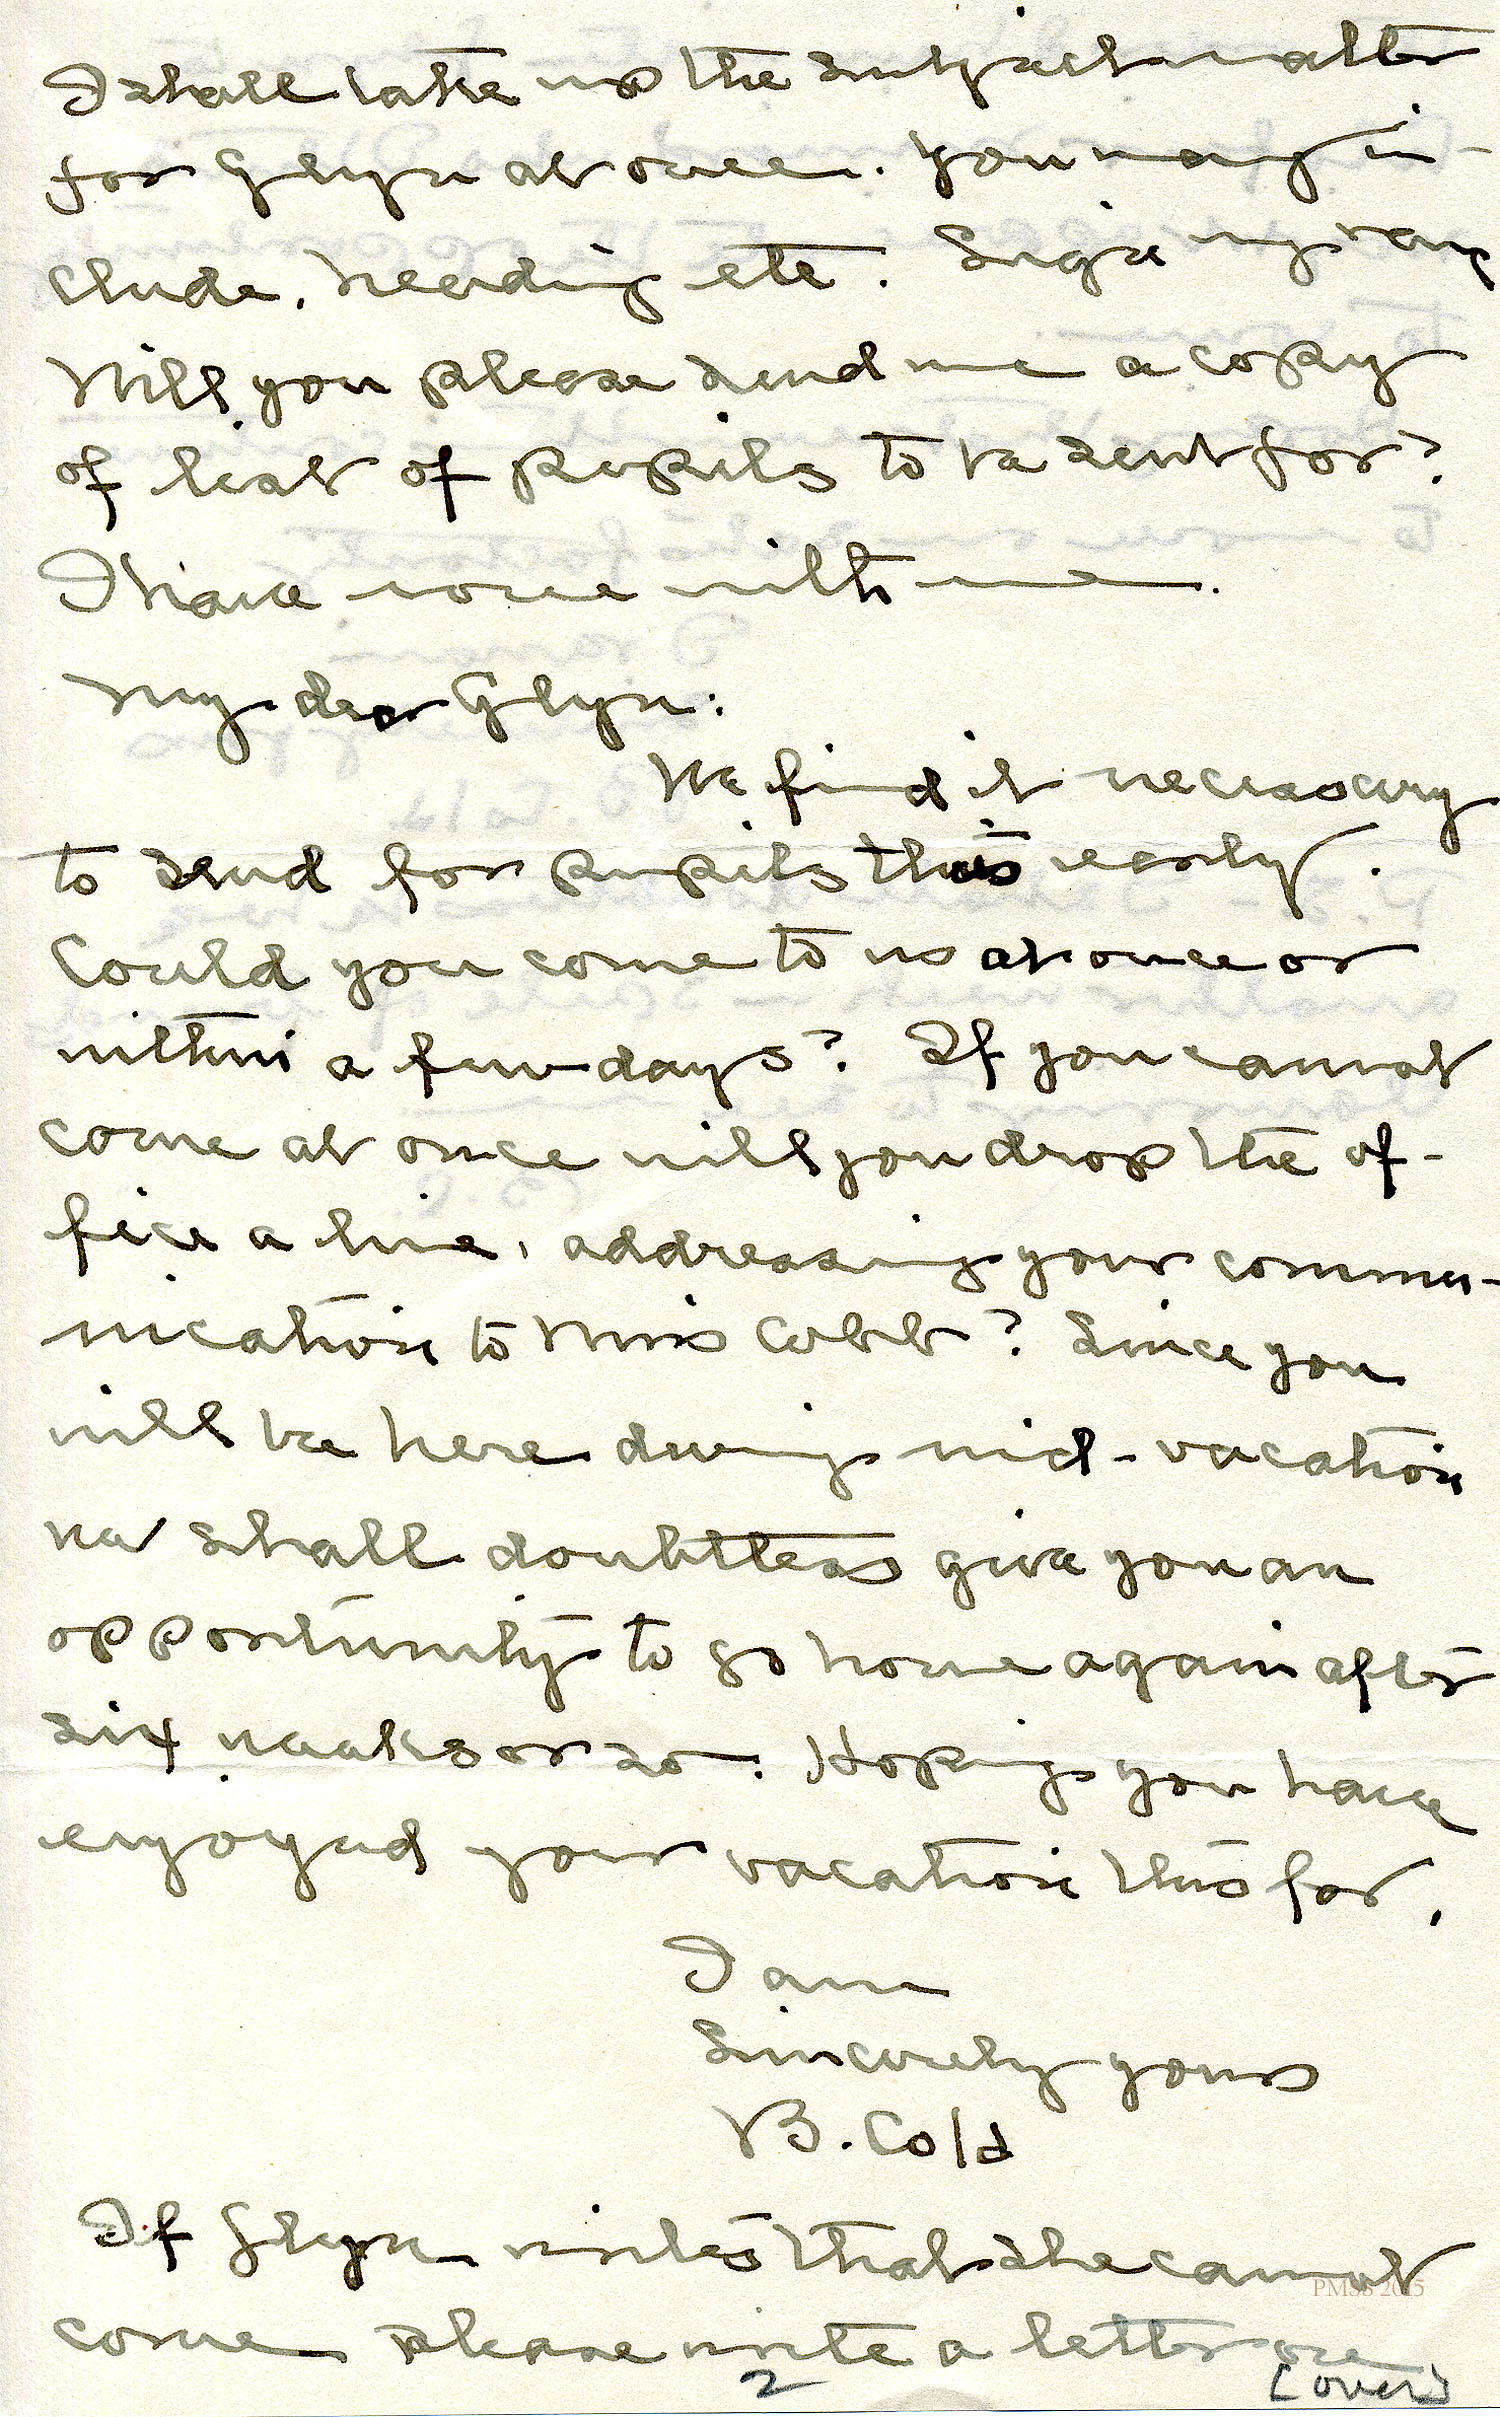 I shall take up the subject matter
for Glyn at once. You may in-
clude, heading etc. Sign my name
Will you please send me a copy
of list of pupils to be sent for?
I have none with me.
My dear Glyn:
We find it necessary
to send for pupils this early.
Could you come to us at once or
within a few days? If you cannot
come at once will you drop the of-
fice a line, addressing your commu-
nication to Miss Cobb? Since you
will be here during mid-vacation
we shall doubtless give you an
opportunity to go home again after
six weeks or so. Hoping you have
enjoyed your vacation thus far,
I am
Sincerely yours
B. Cold
If Glyn writes that she cannot
come please write a letter
2 [over]
PMSS 2015